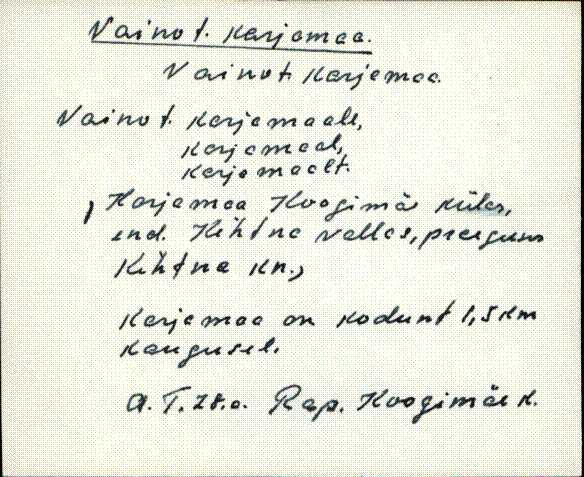 Vainot. Karjamaa.
Vainot. karjamaa.
Vainot. karjamaale,
karjamaal,
karjamaalt.
, Karjamaa Koogimäe külas,
end. Kehtna vallas, praegune
Kehtna kn.,
Karjamaa on kodunt 1,5 km
kaugusel.
A. T. 78.a. Rap. Koogimäe k.